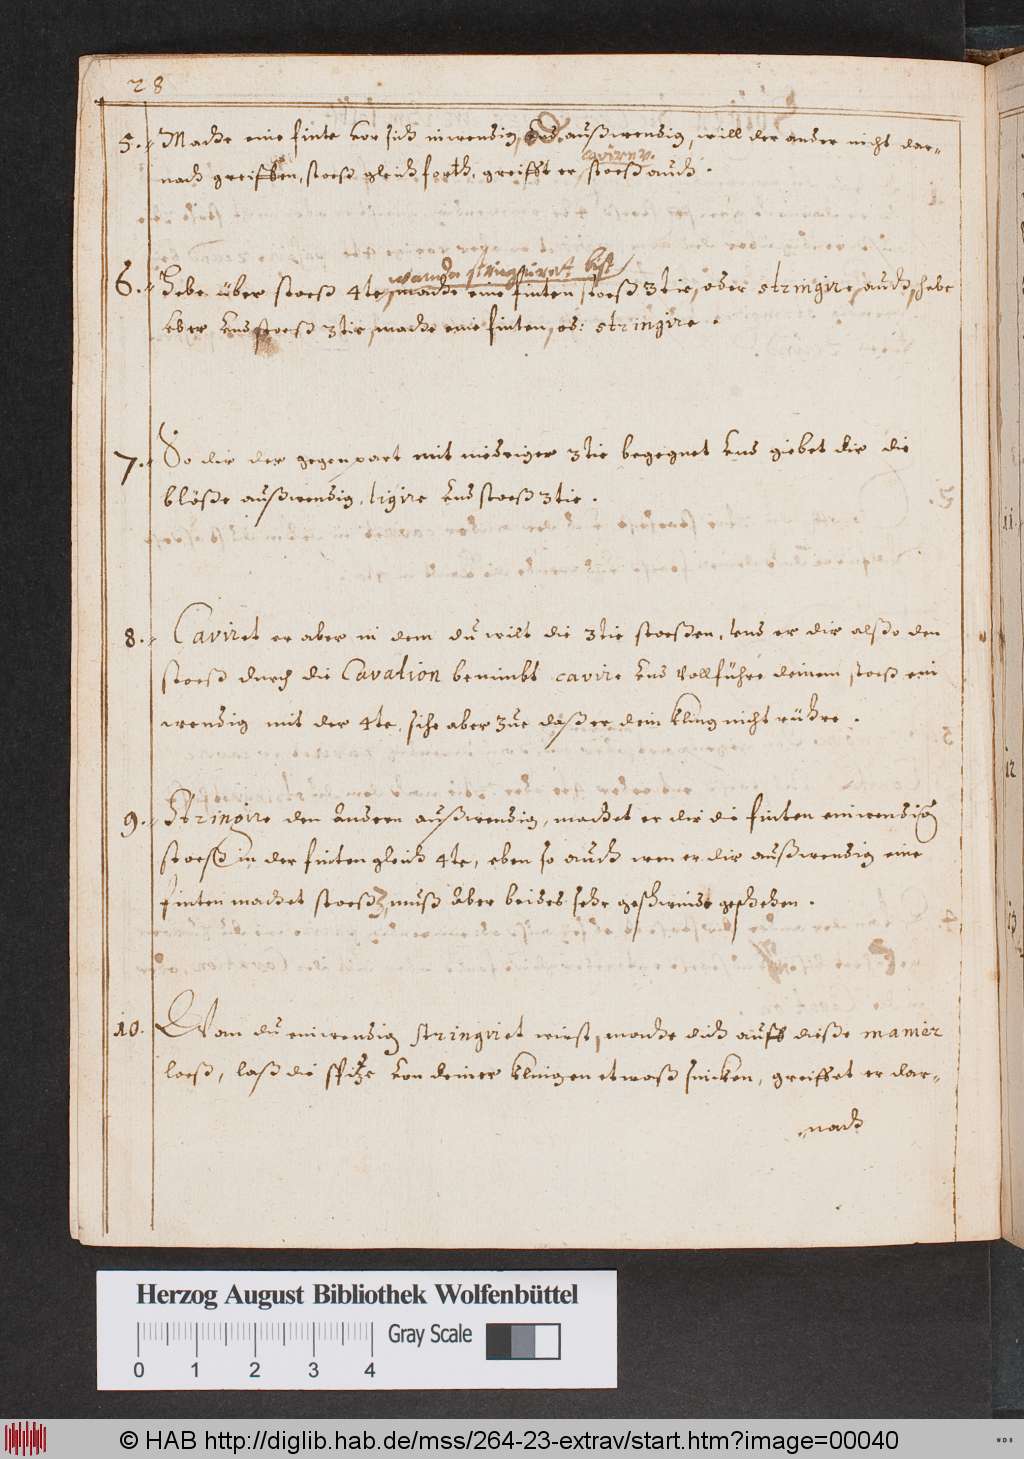 28
5. Mache eine finte vor sich inwendig, und außwendig, will der ander nicht dar-
caviren.
nach greiffen, stoeß gleich forth, greifft er stoeß auch.
wan du stringiret bist
6. Hebe über stoeß 4te, mache eine finten stoeß 3tie, oder stringire, auch, hebe
über und stoeß 3tie, mache eine finten, od: stringire.
7. So dir der gegenpart mit niedriger 3tie begegnet und giebet dir die
blöße außwendig, ligire und stoeß 3tie.
8. Caviret er aber in dem du wilt die 3tie stoeßen, und er dir alßo den
stoeß durch die Cavation benimbt cavire und vollführe deinem stoeß ein
wendig mit der 4te, sihe aber zue daß er dein kling nicht rühre.
9. Stringire den andern außwendig, machet er dir die finten einwendig
stoeß in der finten gleich 4te, eben so auch wen er dir außwendig eine
finten machet stoeß 3, muß aber beides sehr geschwindt geschehen.
10. Wan du einwendig stringiret wirst, mache dich auff dieße manier
loeß, laß die spitze von deiner klingen etwaß sincken, greiffet er dar-
nach
11.
12
13
Herzog August Bibliothek Wolfenbüttel
Gray Scale
0 1 2 3 4
© HAB http://diglib.hab.de/mss/264-23-extrav/start.htm?image=00040